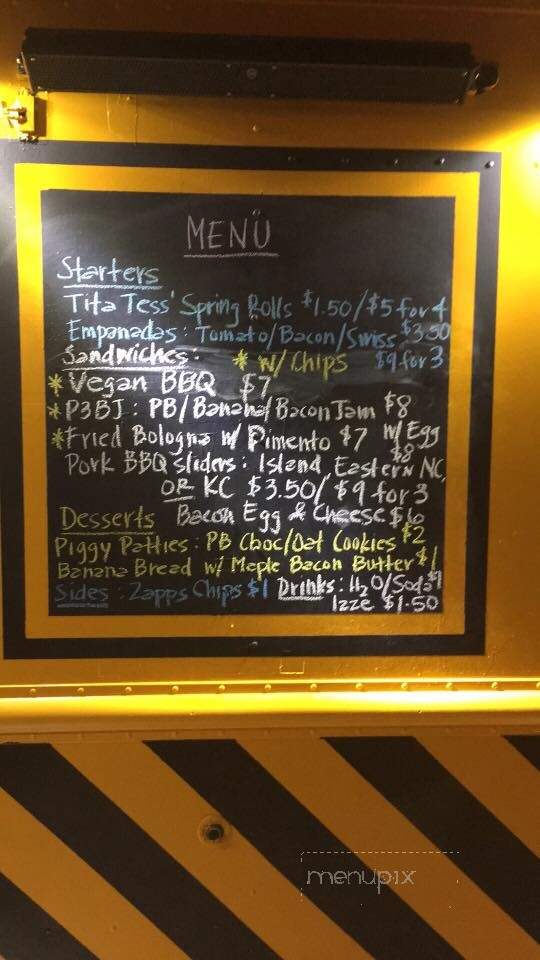 MENU
Starters
Tita Tess' Spring Rolls $1.50/$5 for 4
Empanadas: Tomato/Bacon/Swiss $3.50
Sandwiches: * w/ Chips $9 for 3
*Vegan BBQ $7
*P3BJ: PB/Banana/Bacon Jam $8
*Fried Bologna w/ Pimento $7 w/ Egg $8
Pork BBQ Sliders: Island, Eastern NC,
OR KC $3.50/$9 for 3
Bacon Egg & Cheese $6
Desserts
Piggy Patties: PB Choc/Oat Cookies $2
Banana Bread w/ Maple Bacon Butter $1
Sides: Zapps Chips $1 Drinks: H2O/Soda $1
Izze $1.50
menupix